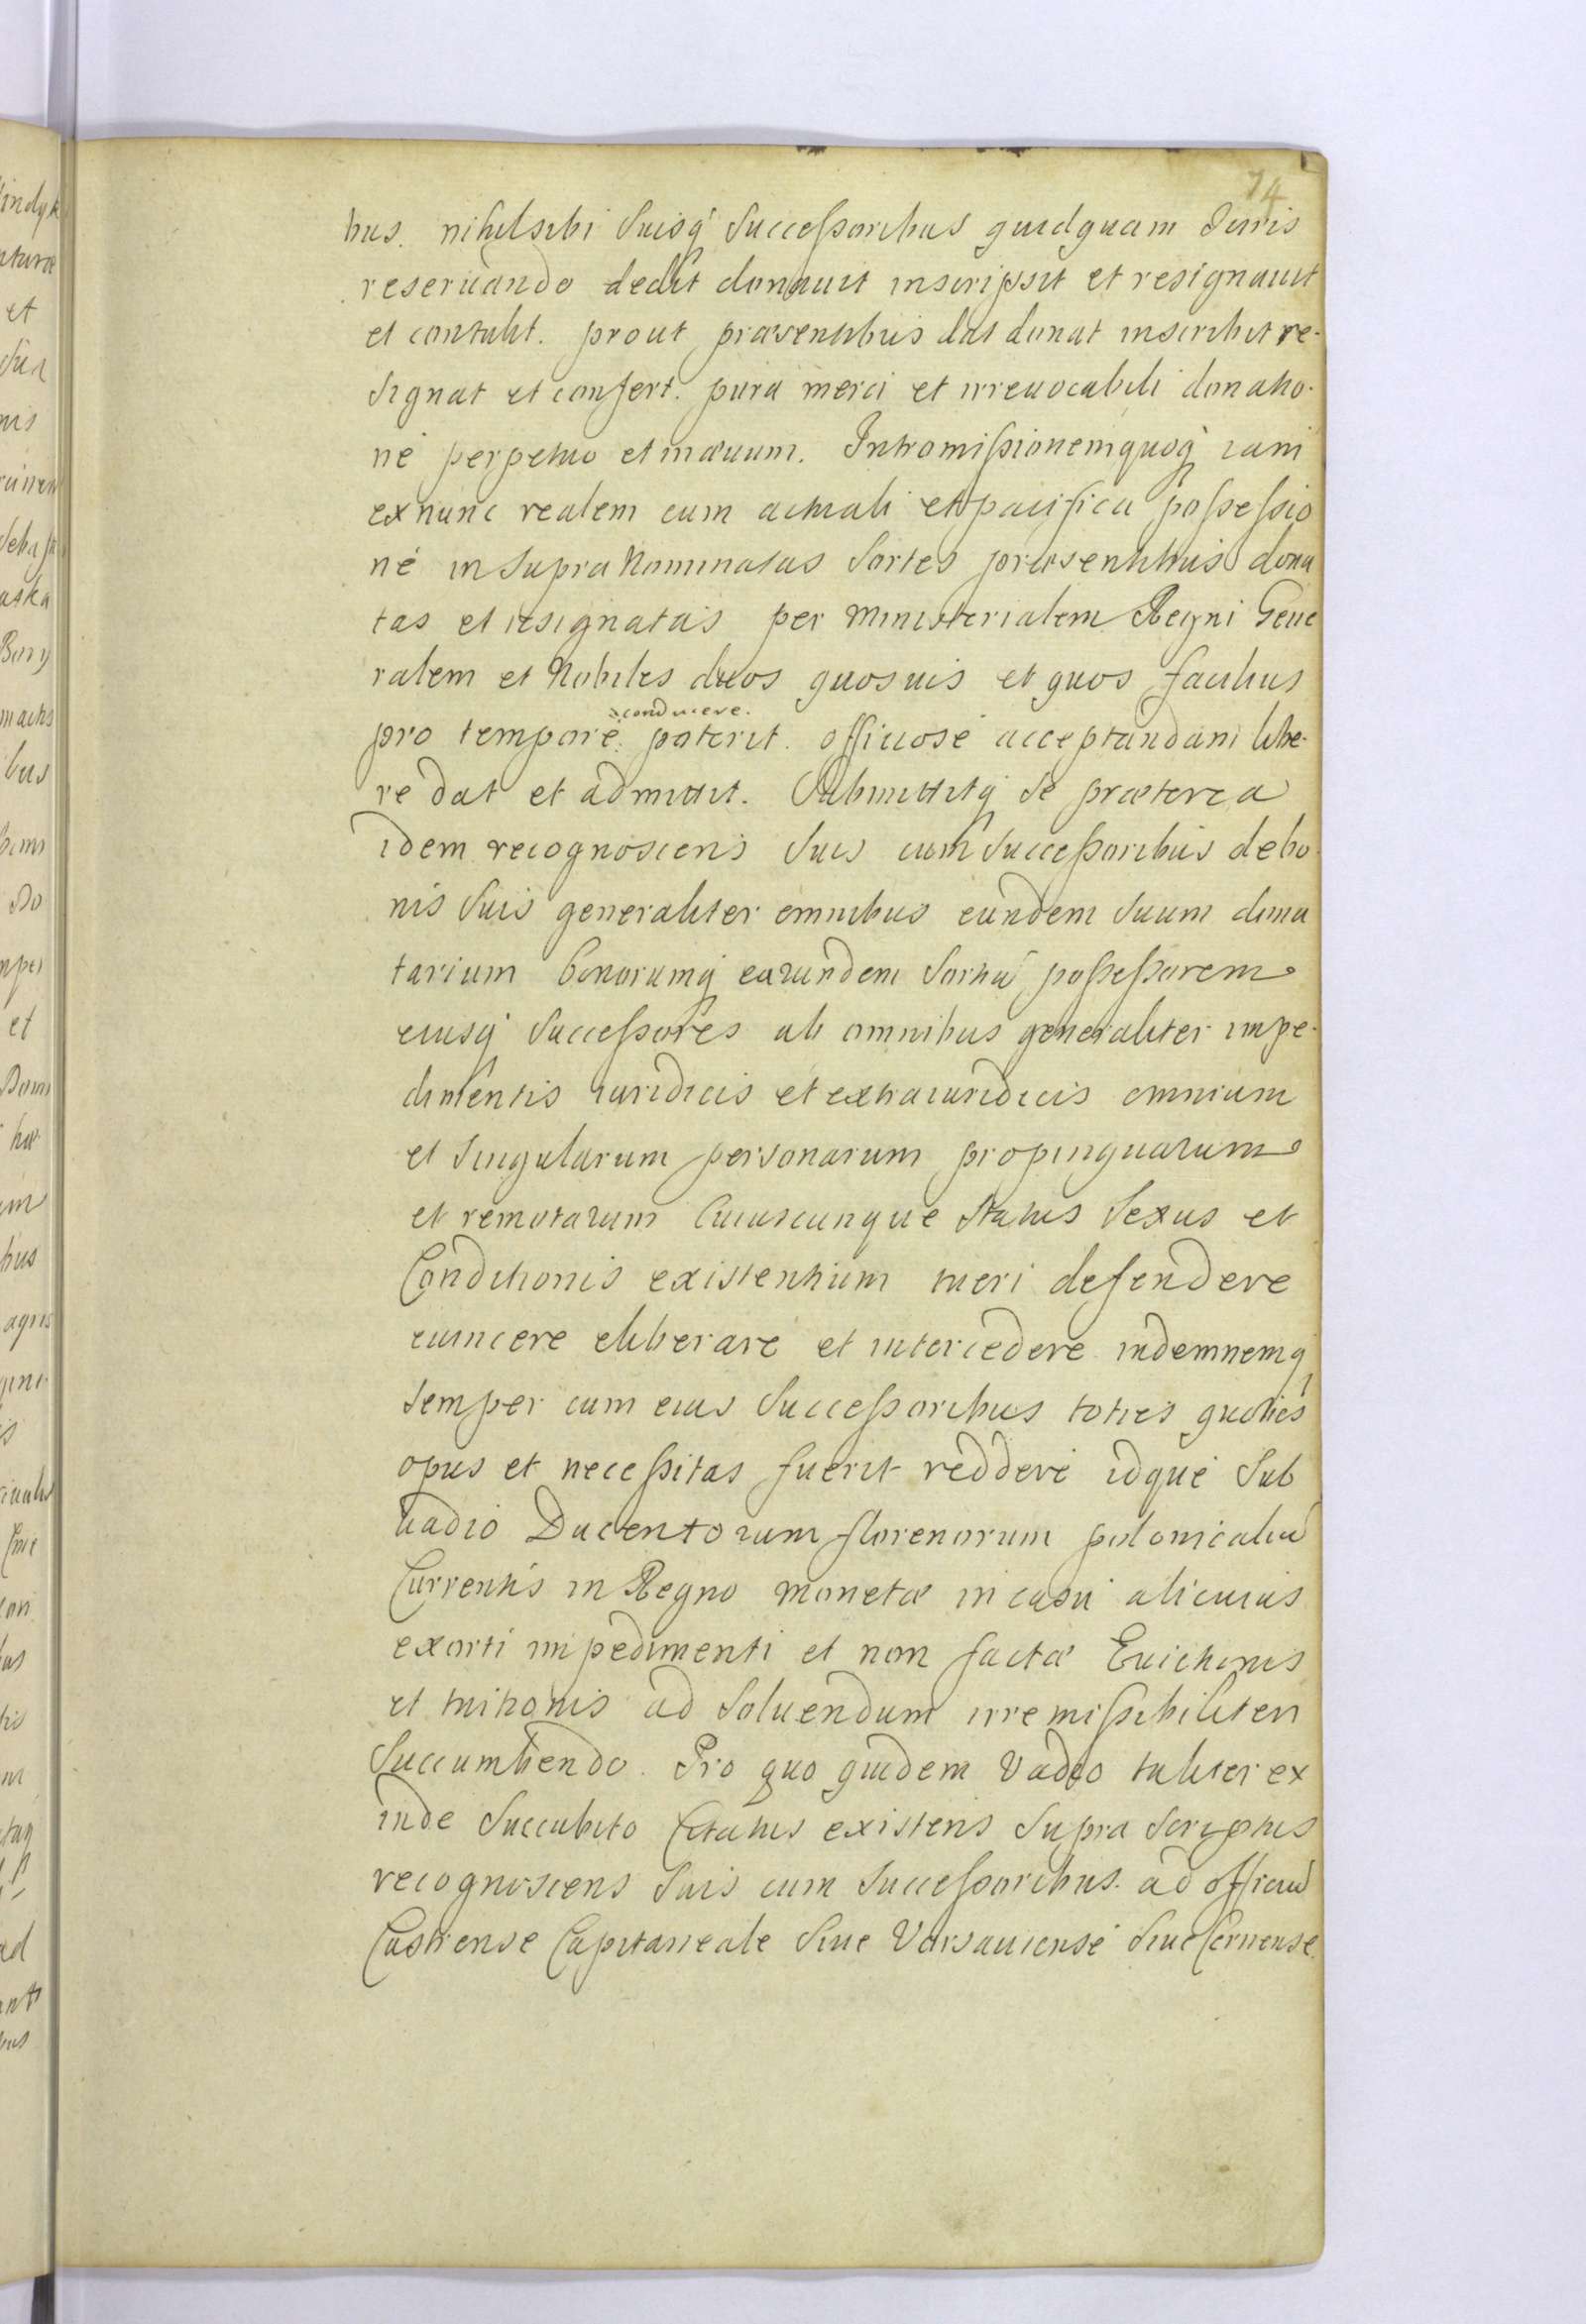 74
bus. nihil sibi suisq successoribus quidquam Iuris
reseruando dedit donauit inscripsit et resignauit
et contulit. prout præsentibus dat donat inscribit re-
signat et confert. pura mera et irreuocabili donatio-
ne perpetuo et in æuum. Intromissionemquoq iam
ex nunc realem cum actuali et pacifica possessio
ne in supra Nominatas sortes præsentibus dona
tas et resignatas per Ministerialem Regni Gene
ralem et Nobiles duos quosuis et quos facilius
conducere.
pro tempore poterit. officiose acceptandam libe-
re dat et admittit. Submittitq se præterea
idem recognoscens suis cum successoribus de bo
nis suis generaliter omnibus eundem suum dona
tarium bonorumq earundem sortiu possessorem
eiusq successores ab omnibus generaliter impe-
dimentis iuridicis et extraiuridicis omnium
et singularum personarum propinquarum
et remotarum Cuiuscunque status sexus et
Conditionis existentium tueri defendere
euincere eliberare et intercedere indemnemq
semper cum eius successoribus toties quoties
opus et necessitas fuerit reddere idque sub
vadio Ducentorum florenorum polonicaliu
Currentis in Regno monetæ in casu alicuius
exorti impedimenti et non factæ Euictionis
et tuitionis ad soluendum irremissibiliter
succumbendo. Pro quo quidem Vadio taliter ex
inde succubito Citatus existens supra scriptus
recognoscens suis cum successoribus. ad officiu
Castrense Capitaneale siue Varsauiense siue Cernense